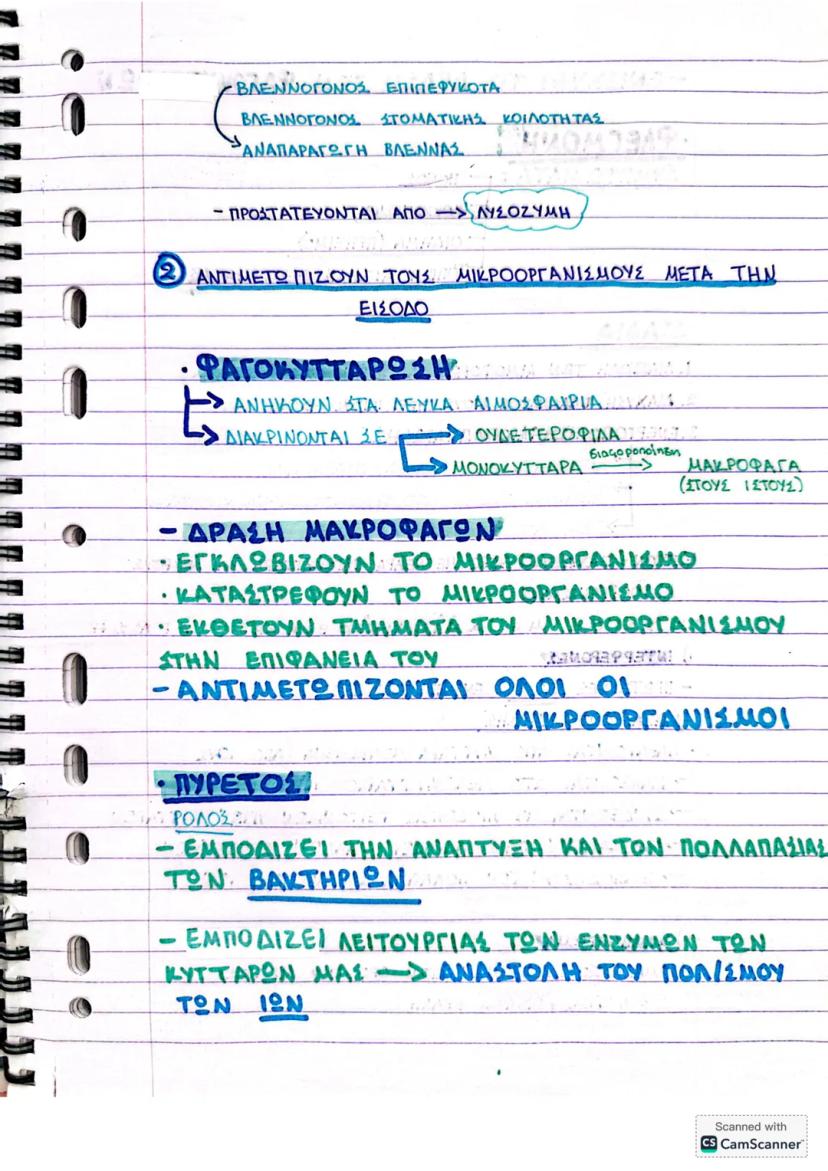 ΒΛΕΝΝΟΓΟΝΟΣ ΕΠΙΠΕΦΥΚΟΤΑ
ΒΛΕΝΝΟΓΟΝΟΣ ΣΤΟΜΑΤΙΚΗΣ ΚΟΙΛΟΤΗΤΑΣ
ΑΝΑΠΑΡΑΓΩΓΗ ΒΛΕΝΝΑΣ
- ΠΡΟΣΤΑΤΕΥΟΝΤΑΙ ΑΠΟ → ΛΥΣΟΖΥΜΗ
② ΑΝΤΙΜΕΤΩΠΙΖΟΥΝ ΤΟΥΣ ΜΙΚΡΟΟΡΓΑΝΙΣΜΟΥΣ ΜΕΤΑ ΤΗΝ
ΕΙΣΟΔΟ
· ΦΑΓΟΚΥΤΤΑΡΩΣΗ
→ ΑΝΗΚΟΥΝ ΣΤΑ ΛΕΥΚΑ ΑΙΜΟΣΦΑΙΡΙΑ
→ ΔΙΑΚΡΙΝΟΝΤΑΙ ΣΕ → ΟΥΔΕΤΕΡΟΦΙΛΑ
→ ΜΟΝΟΚΥΤΤΑΡΑ διαφοροποίηση → ΜΑΚΡΟΦΑΓΑ
(ΣΤΟΥΣ ΙΣΤΟΥΣ)
- ΔΡΑΣΗ ΜΑΚΡΟΦΑΓΩΝ
· ΕΓΚΛΩΒΙΖΟΥΝ ΤΟ ΜΙΚΡΟΟΡΓΑΝΙΣΜΟ
· ΚΑΤΑΣΤΡΕΦΟΥΝ ΤΟ ΜΙΚΡΟΟΡΓΑΝΙΣΜΟ
· ΕΚΘΕΤΟΥΝ ΤΜΗΜΑΤΑ ΤΟΥ ΜΙΚΡΟΟΡΓΑΝΙΣΜΟΥ
ΣΤΗΝ ΕΠΙΦΑΝΕΙΑ ΤΟΥ
- ΑΝΤΙΜΕΤΩΠΙΖΟΝΤΑΙ ΟΛΟΙ ΟΙ
ΜΙΚΡΟΟΡΓΑΝΙΣΜΟΙ
· ΠΥΡΕΤΟΣ
ΡΟΛΟΣ
- ΕΜΠΟΔΙΖΕΙ ΤΗΝ ΑΝΑΠΤΥΞΗ ΚΑΙ ΤΟΝ ΠΟΛΛΑΠΑΣΙΑΣ
ΤΩΝ ΒΑΚΤΗΡΙΩΝ
- ΕΜΠΟΔΙΖΕΙ ΛΕΙΤΟΥΡΓΙΑΣ ΤΩΝ ΕΝΖΥΜΩΝ ΤΩΝ
ΚΥΤΤΑΡΩΝ ΜΑΣ → ΑΝΑΣΤΟΛΗ ΤΟΥ ΠΟΛ/ΣΜΟΥ
ΤΩΝ ΙΩΝ
Scanned with
CS CamScanner